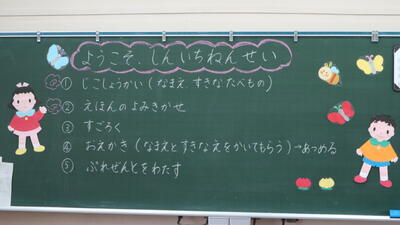 ようこそ、しんいちねんせい
① じこしょうかい(なまえ、すきなたべもの)
② えほんのよみきかせ
③ すごろく
④ おえかき(なまえとすきなえをかいてもらう)→あつめる
⑤ ぷれぜんとをわたす